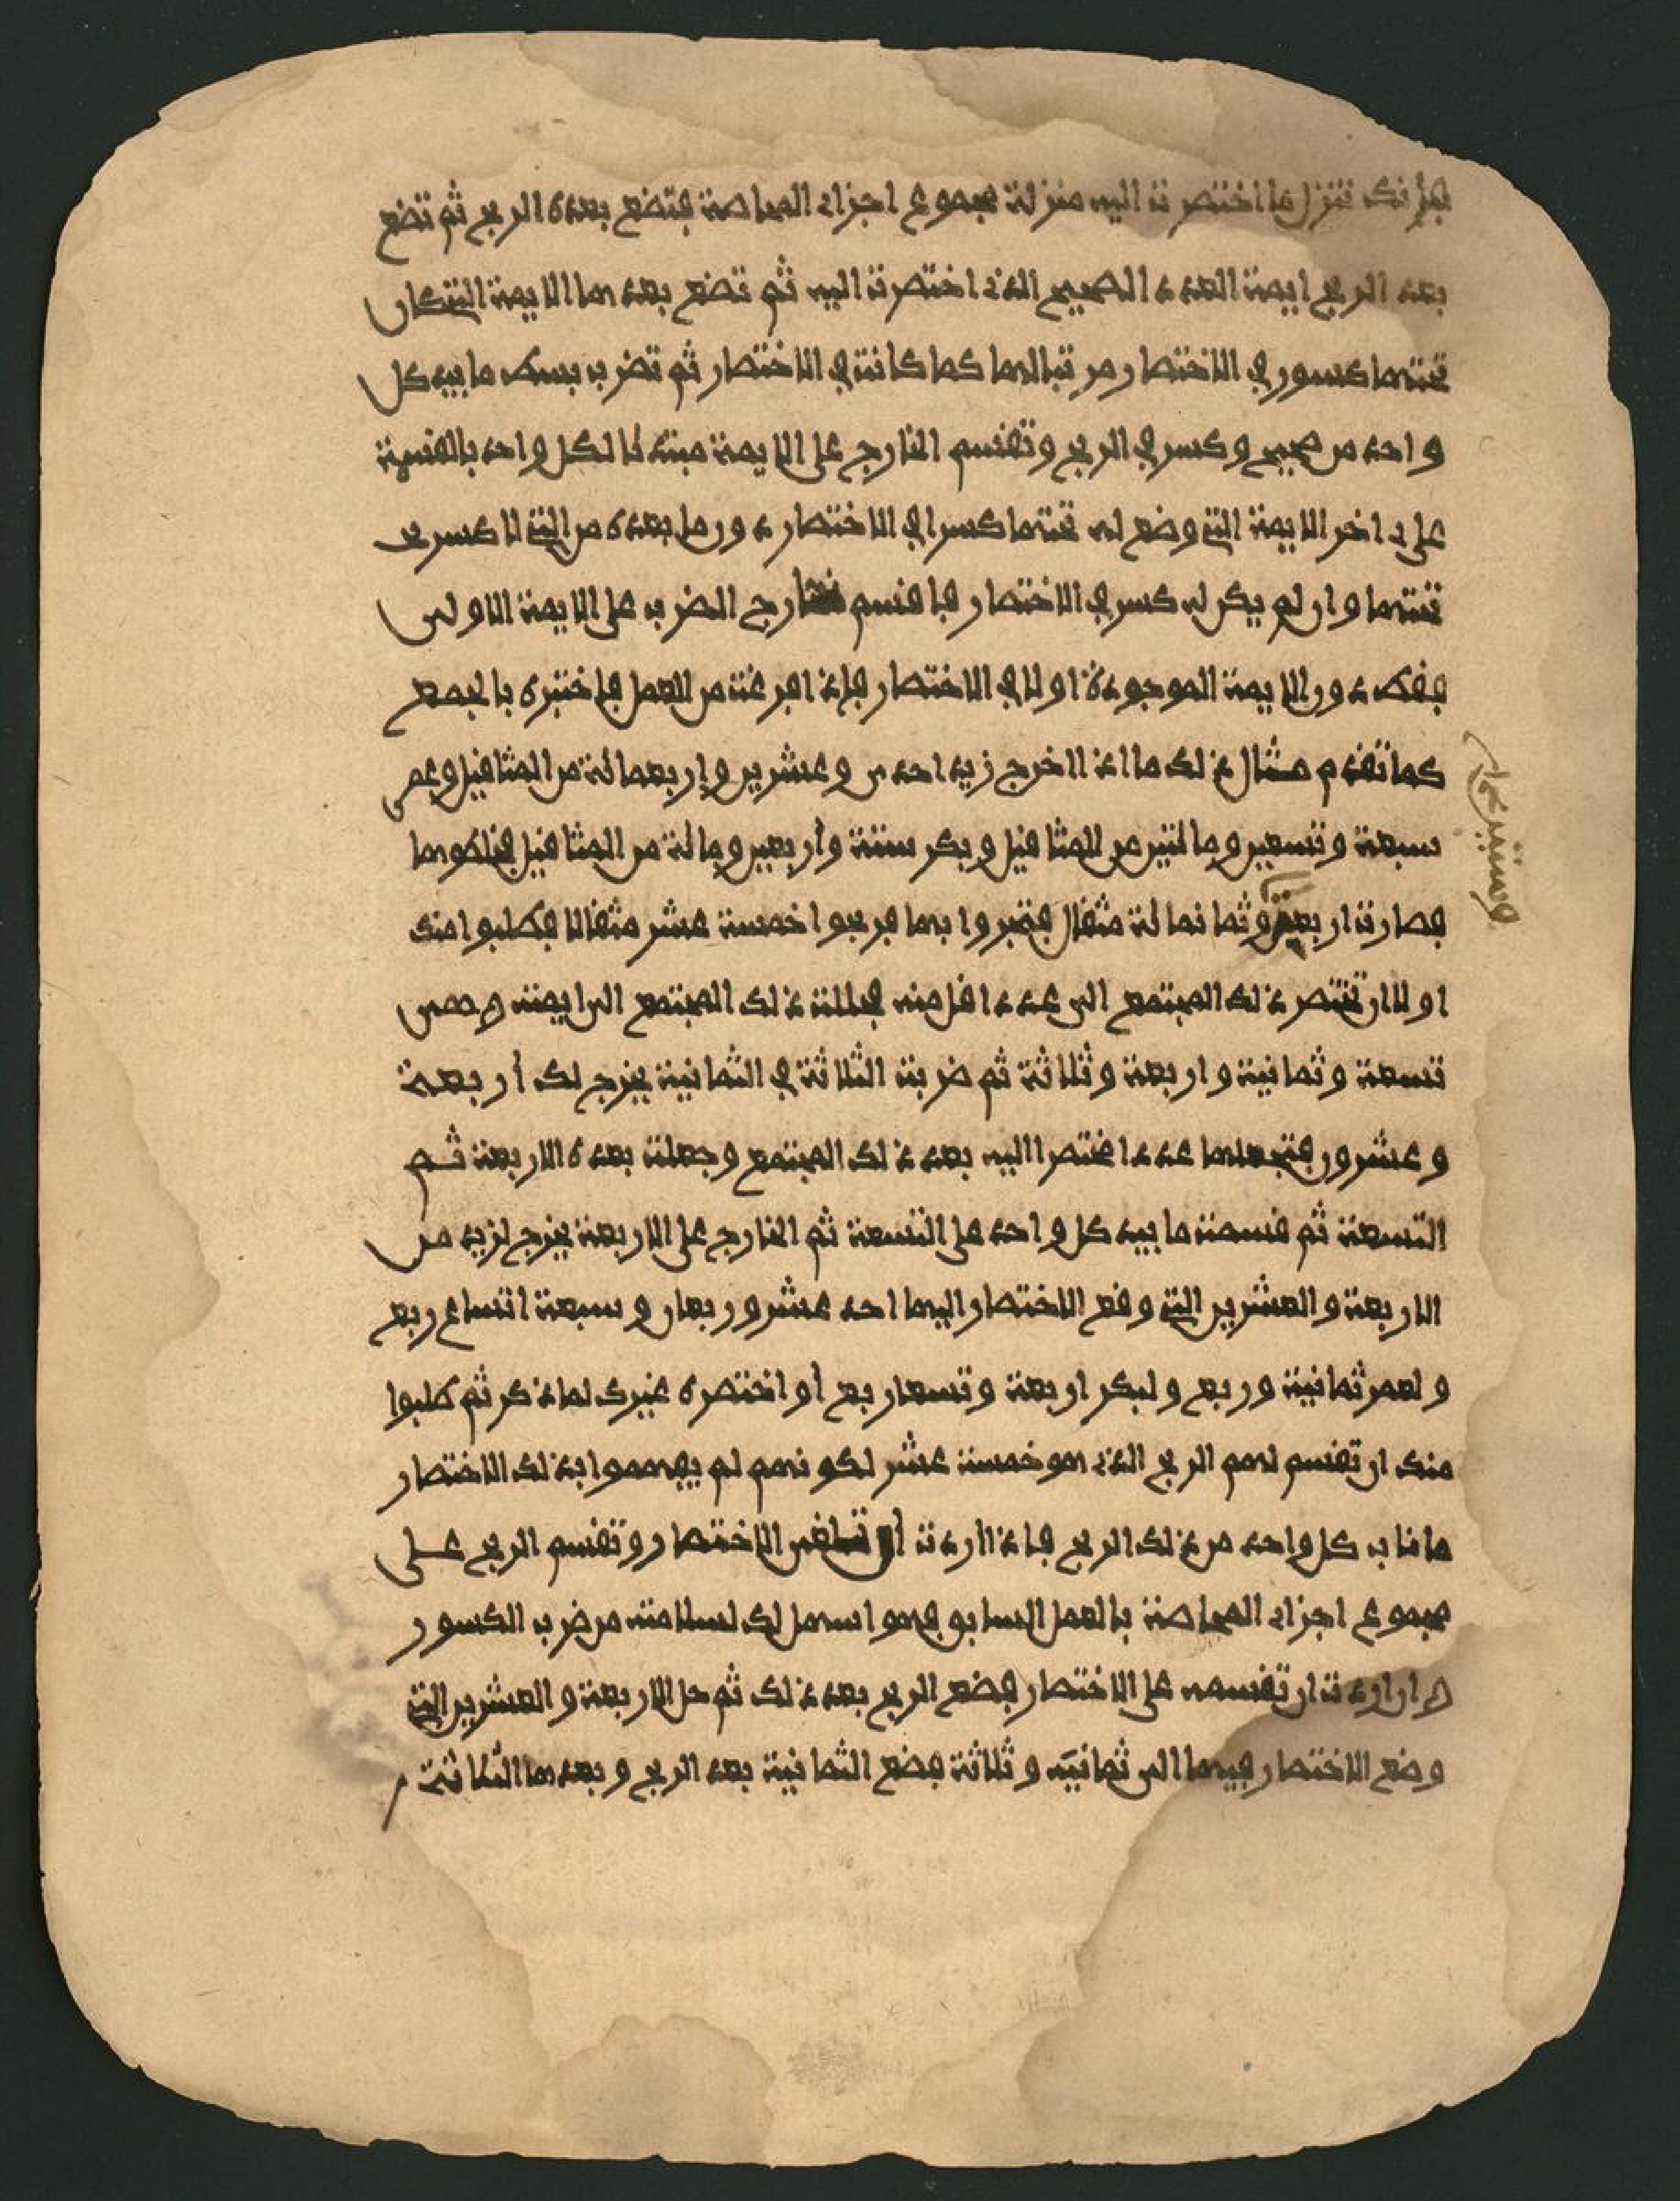 فإنك تنزل ما اختصرت اليه منزلة مجموع اجزاء المحاصة فتضع بعده الربح ثم تضع
بعد الربح ايمة العدد الصحيح الذي اختصرت اليه ثم تضع بعدها الايمة التي كان
تحتها كسور في الاختصار مرتبا لها كما كانت في الاختصار ثم تضرب بسط ما بيد كل
واحد من صحيح وكسر في الربح وتقسم الخارج على الايمة مبتدئا لكل واحد بالقسمة
على اخر الايمة التي وضع له تحتها كسرا في الاختصار دون ما بعده من التي لا كسر
تحتها وان لم يكن له كسر في الاختصار فاقسم خارج الضرب على الايمة الاولى
فقط دون الايمة الموجودة اولا في الاختصار فإذا فرغت من العمل فاختبره بالجمع
كما تقدم مثال ذلك ما اذا اخرج زيد احدى وعشرين واربعمائة من المثاقيل وعمر
سبعة وتسعين ومائتين من المثاقيل وبكر ستة وأربعين ومائة من المثاقيل فخلطوها
فصارت اربعة وثمانمائة مثقال فتجروا بها فربحوا خمسة عشر مثقالا فطلبوا منك
وستين
اولا ان تختصر ذلك المجتمع الى عدد اقل منه فحللت ذلك المجتمع الى ايمته وهي
تسعة وثمانية واربعة وثلاثة ثم ضربت الثلاثة في الثمانية يخرج لك أربعة
وعشرون فتجعلها عددا مختصرا اليه بعد ذلك المجتمع وجعلت بعده الاربعة ثم
التسعة ثم قسمت ما بيد كل واحد على التسعة ثم الخارج على الاربعة يخرج لزيد من
الاربعة والعشرين التي وقع الاختصار اليها احد عشر وربعان وسبعة اتساع ربع
ولعمر ثمانية وربع ولبكر اربعة وتسعا ربع أو اختصره غيرك لما ذكر ثم طلبوا
منك ان تقسم لهم الربح الذي هو خمسة عشر لكونهم لم يفهموا بذلك الاختصار
ما ناب كل واحد من ذلك الربح فإذا اردت ان تلغي الاختصار وتقسم الربح على
مجموع اجزاء المحاصة بالعمل السابق فهو اسهل لك لسلامته من ضرب الكسور
وان اردت ان تقسمه على الاختصار فضع الربح بعد ذلك ثم حل الاربعة والعشرين التي
وضع الاختصار فيها الى ثمانية وثلاثة فضع الثمانية بعد الربح وبعدها الثلاثة